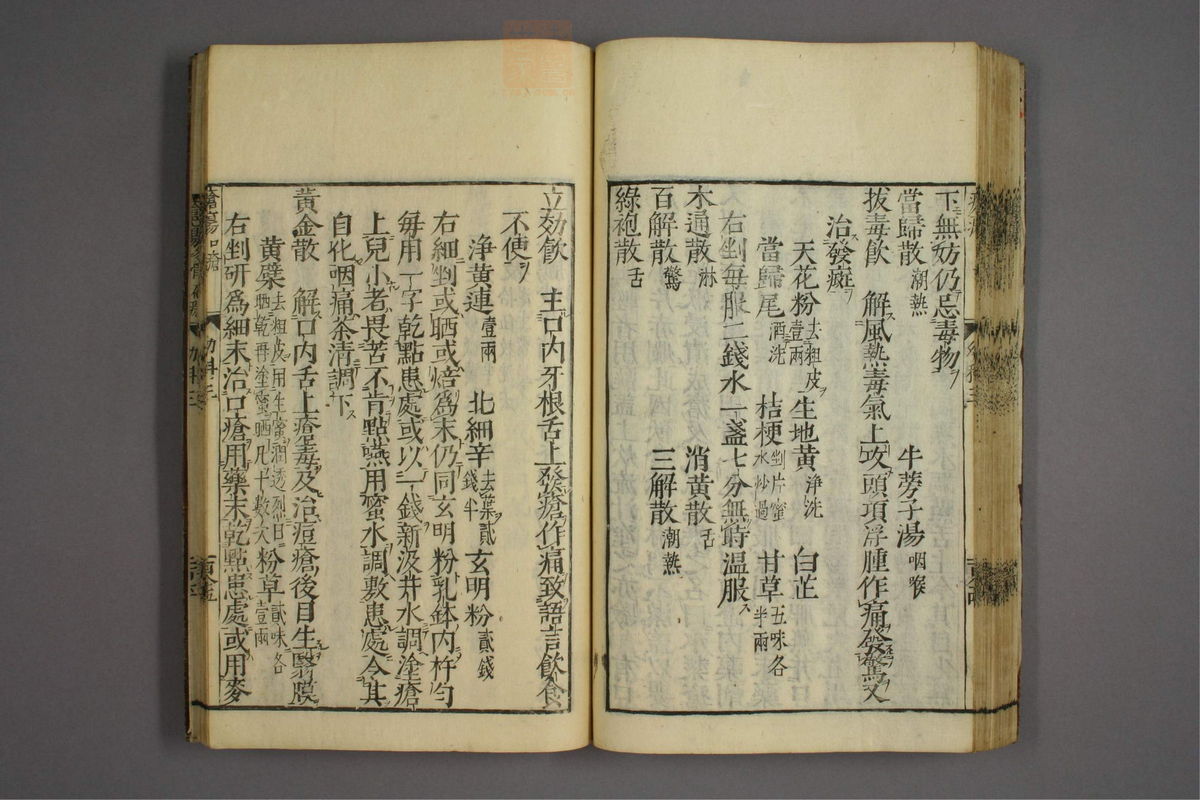 下無妨仍忌毒物
當歸散潮熱　牛蒡子湯咽喉
拔毒飲　解風熱毒氣上攻頭項浮腫作痛發驚又
治發斑
天花粉去粗皮壹兩　生地黃淨洗　白芷
當歸尾酒洗　桔梗剉片蜜水炒過　甘草五味各半兩
右剉毎服二錢水一盞七分無時温服
木通散淋　消黃散舌
百解散驚　三解散潮熱
綠袍散舌
立効飲　主口内牙根舌上發瘡作痛致語言飲食
不便
淨黃連壹兩　北細辛去葉貳錢半　玄明粉貳錢
右細剉或晒或焙爲末仍同玄明粉乳鉢内杵勻
毎用一字乾點患處或以一錢新汲井水調塗瘡
上兒小者畏苦不肯點嚥用蜜水調敷患處令其
自化咽痛茶清調下
黃金散　解口内舌上瘡毒及治痘瘡後目生翳膜
黃蘗去粗皮用生蜜潤透烈日晒乾再塗蜜晒凡十數次　大粉草貳味各壹兩
右剉研爲細末治口瘡用藥末乾點患處或用麥